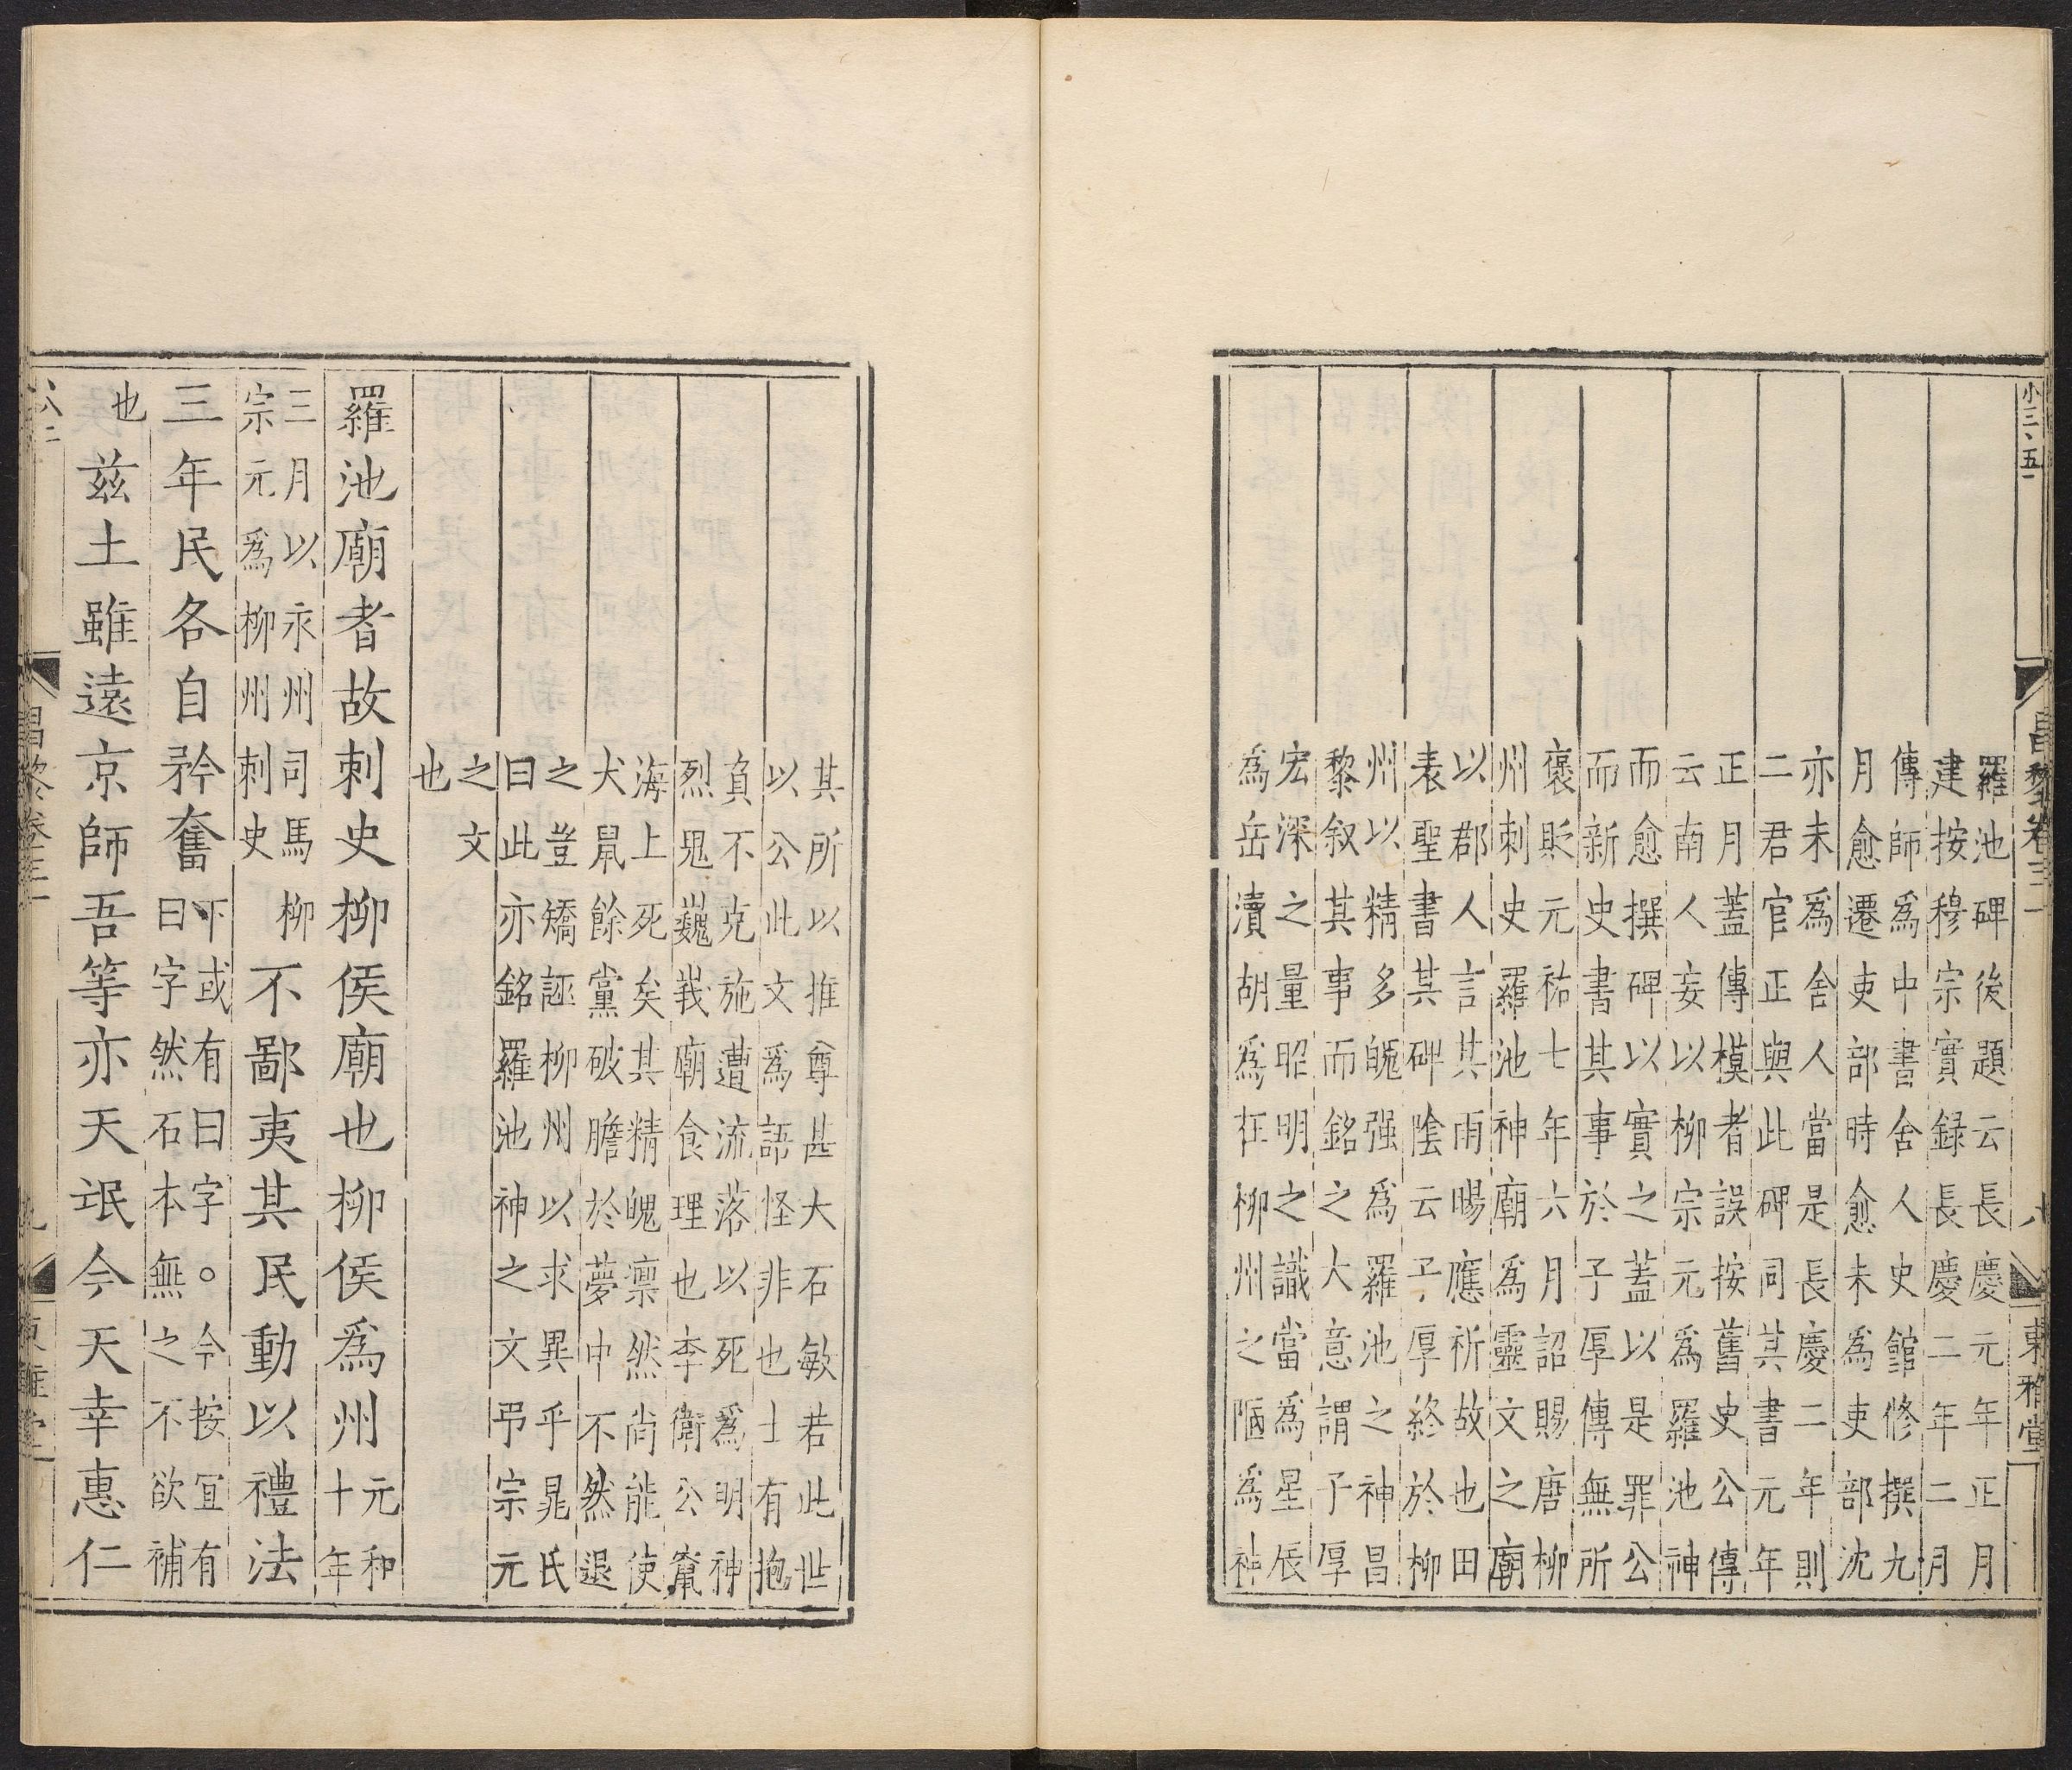 小三、五一
昌黎卷三一
八
東雅堂
羅池碑後題云長慶元年正月
建按穆宗實録長慶二年二月
傳師爲中書舍人史館修撰九
月愈遷吏部時愈未爲吏部沈
亦未爲舍人當是長慶二年則
二君官正與此碑同其書元年
正月蓋傳模者誤按舊史公傳
云南人妄以柳宗元爲羅池神
而愈撰碑以實之蓋以是罪公
而新史書其事於子厚傳無所
褒貶元祐七年六月詔賜唐柳
州刺史羅池神廟爲靈文之廟
以郡人言其雨暘應祈故也田
表聖書其碑陰云子厚終於柳
州以精多魄强爲羅池之神昌
黎叙其事而銘之大意謂子厚
宏深之量昭明之識當爲星辰
爲岳瀆胡爲在柳州之陋爲神
其所以推尊甚大石敏若此世
以公此文爲語怪非也士有抱
負不克施遭流落以死爲明神
烈鬼巍峩廟食理也李衛公竄
海上死矣其精魄凛然尚能使
犬鼠餘黨破膽於夢中不然退
之豈矯誣柳州以求異乎晁氏
曰此亦銘羅池神之文弔宗元
之文
也
羅池廟者故刺史柳侯廟也柳侯爲州元和十年
三月以永州司馬柳宗元爲柳州刺史不鄙夷其民動以禮法
三年民各自矜奮下或有曰字。今按宜有曰字然石本無之不欲補
也茲土雖遠京師吾等亦天氓今天幸惠仁
昌黎卷三一
九
東雅堂